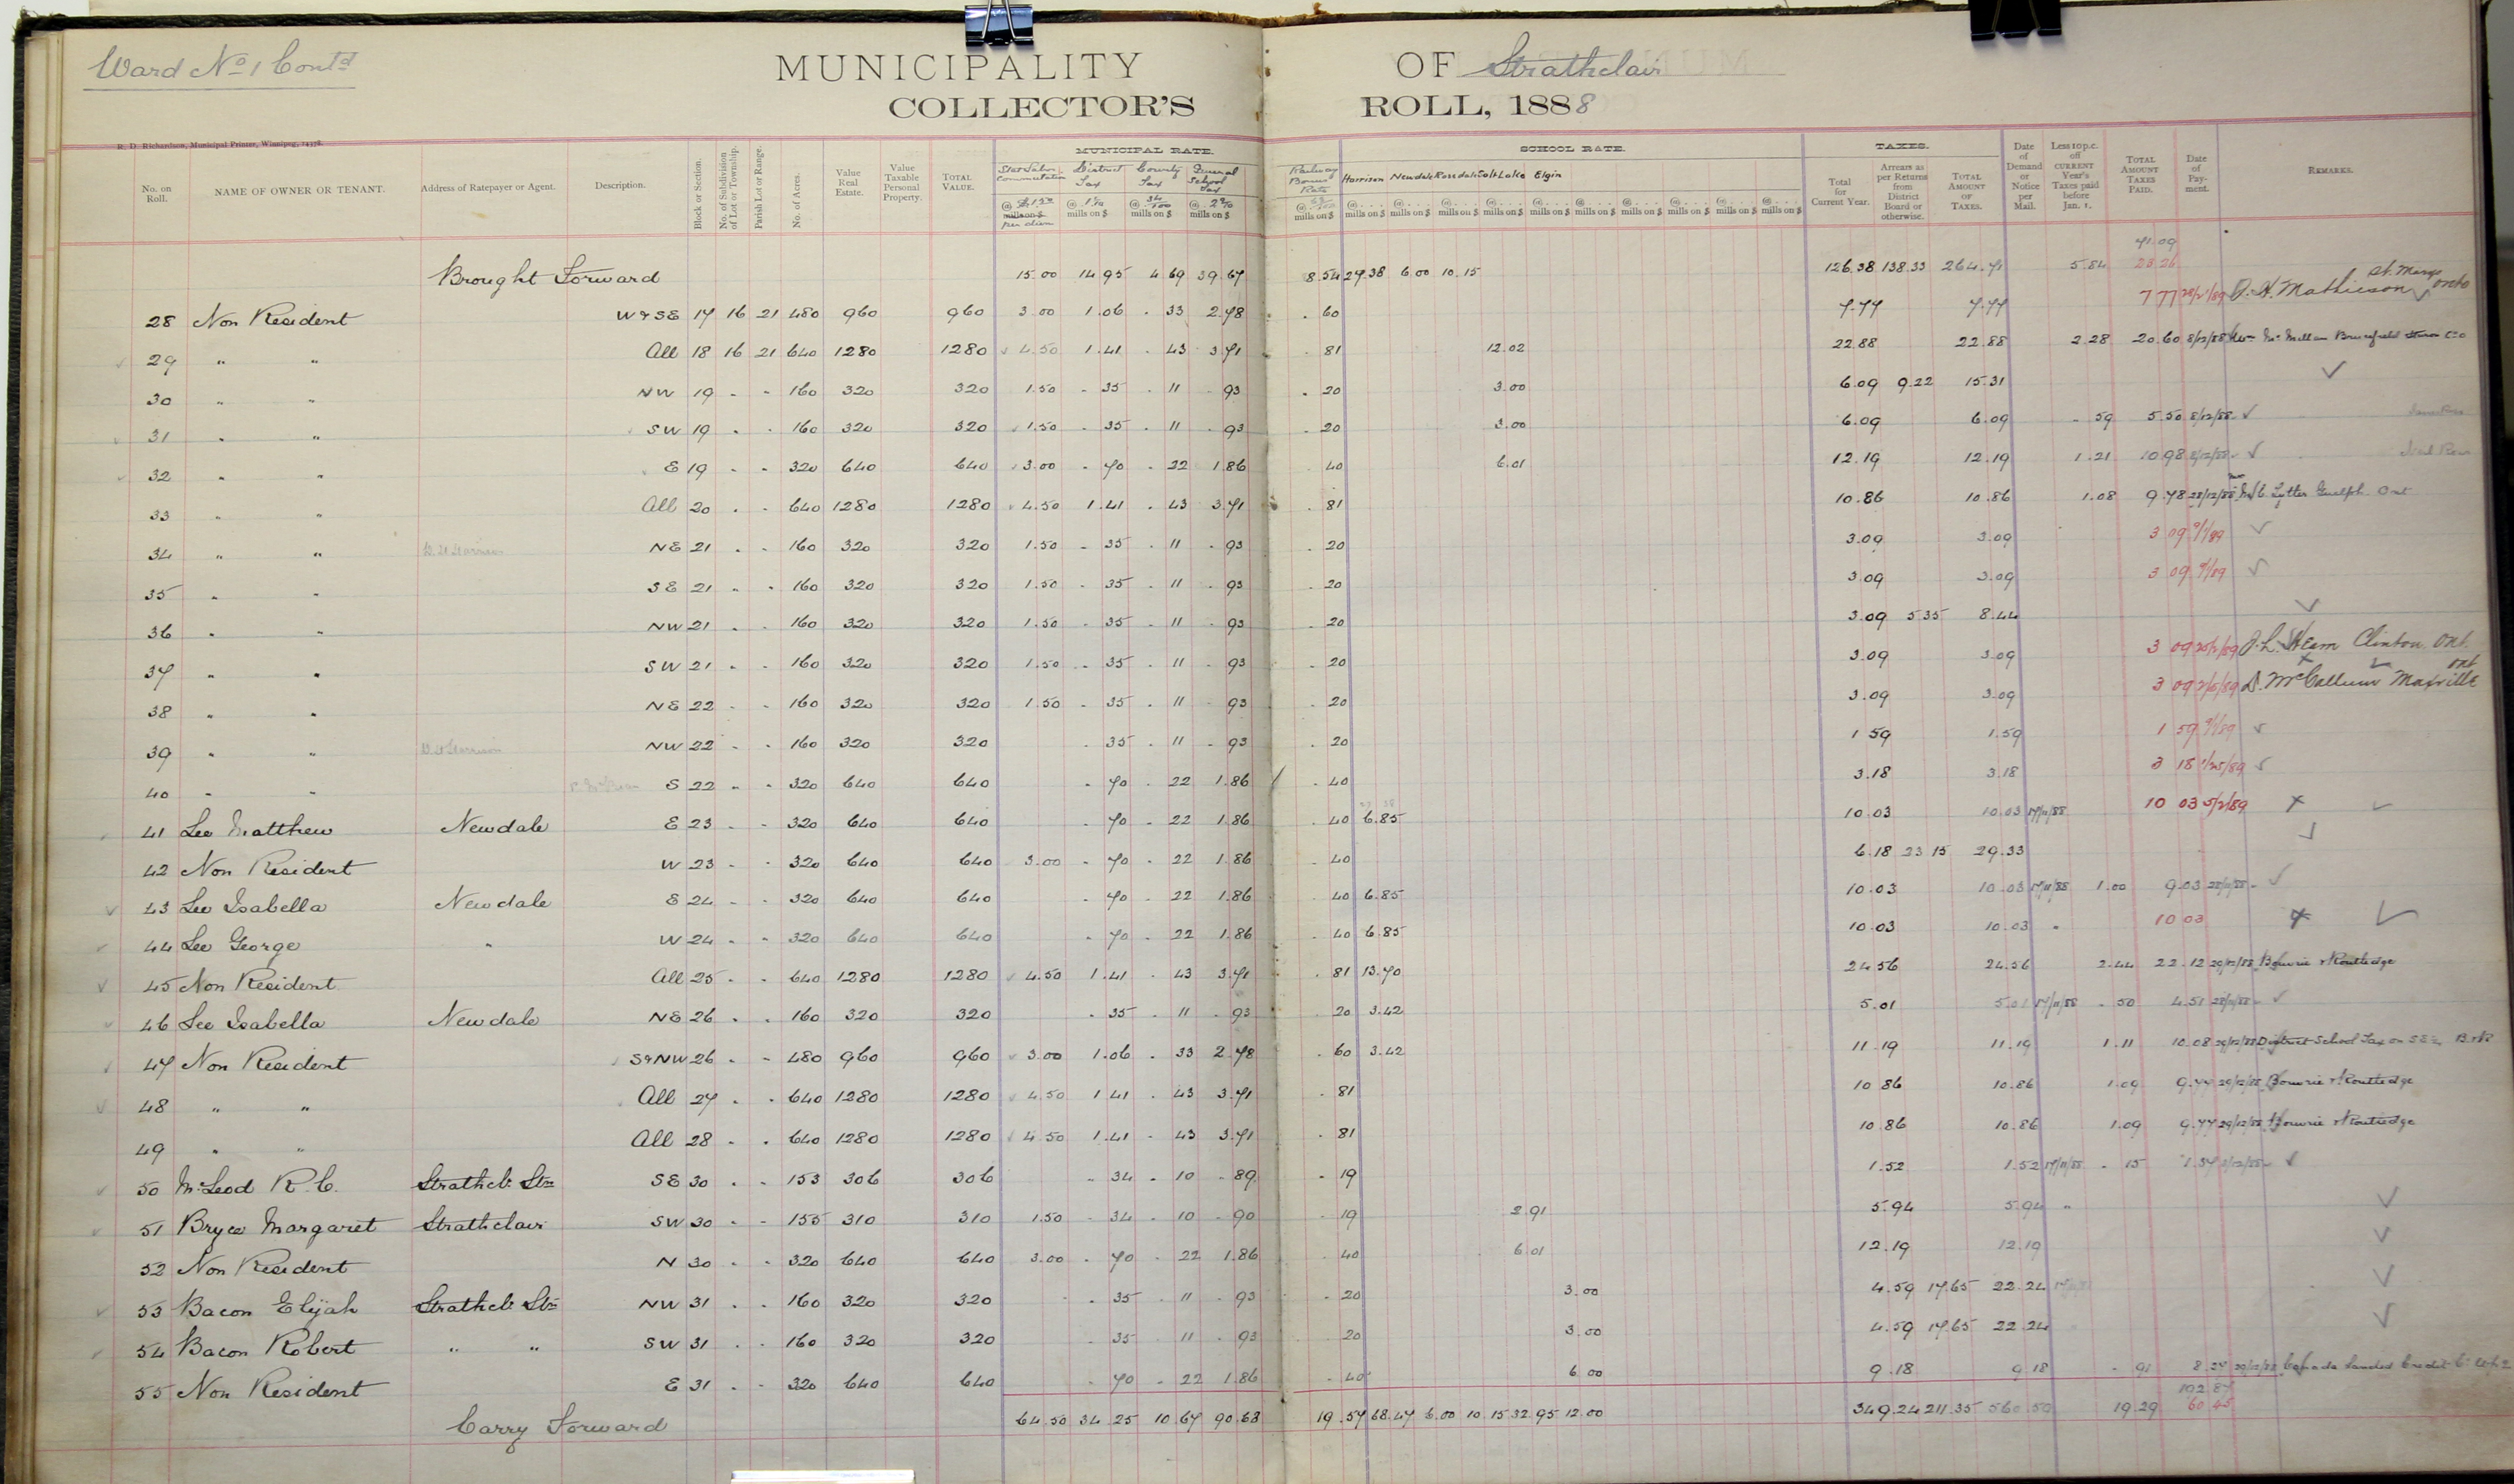 Ward No 1 Contd
MUNICIPALITY OF Strathclair
COLLECTOR'S ROLL, 1888
R. D. Richardson, Municipal Printer, Winnipeg,
MUNICIPAL RATE. SCHOOL RATE. TAXES.
No. on Roll. NAME OF OWNER OR TENANT. Address of Ratepayer or Agent. Description. Block or Section. No. of Subdivision of Lot or Township. Parish Lot or Range. No. of Acres. Value Real Estate. Value Taxable Personal Property. TOTAL VALUE. District Tax County Tax General School Tax Railway Bonus Rate Harrison Newdale Rosedale Salt Lake Elgin Total for Current Year. Arrears as per Returns from District Board or otherwise. TOTAL AMOUNT OF TAXES. Date of Demand or Notice per Mail. Less 10 p.c. off CURRENT Year's Taxes paid before Jan. 1. TOTAL AMOUNT TAXES PAID. Date of Payment. REMARKS.
Brought Forward 15.00 14 95 4 69 39.67 8.54 27.38 6.00 10.15 126.38 138.33 264.71 5.84 71.09 23 26
28 Non Resident W & SE 17 16 21 480 960 960 3.00 1.06 . 33 2.78 . 60 7.77 7.77 7 77 J. H. Mathieson St. Marys Onto
29 " " All 18 16 21 640 1280 1280 4.50 1.41 . 43 3.71 . 81 12.02 22.88 22.88 2.28 20.60 8/12/88 Wm McMillan Brucefield
30 " " NW 19 " " 160 320 320 1.50 . 35 . 11 . 93 . 20 3.00 6.09 9.22 15.31
31 " " SW 19 " " 160 320 320 1.50 . 35 . 11 . 93 . 20 3.00 6.09 6.09 . 59 5.50 8/12/88
32 " " E 19 " " 320 640 640 3.00 . 70 . 22 1.86 . 40 6.01 12.19 12.19 1.21 10.98 8/12/88
33 " " All 20 " " 640 1280 1280 4.50 1.41 . 43 3.71 . 81 10.86 10.86 1.08 9.78 28/12/88 Lytter Guelph Ont
34 " " NE 21 " " 160 320 320 1.50 . 35 . 11 . 93 . 20 3.09 3.09 3 09 9/1/89
35 " " SE 21 " " 160 320 320 1.50 . 35 . 11 . 93 . 20 3.09 3.09 3 09 9/1/89
36 " " NW 21 " " 160 320 320 1.50 . 35 . 11 . 93 . 20 3.09 5.35 8.44
37 " " SW 21 " " 160 320 320 1.50 . 35 . 11 . 93 . 20 3.09 3.09 3 09 Clinton Ont.
38 " " NE 22 " " 160 320 320 1.50 . 35 . 11 . 93 . 20 3.09 3.09 3 09 D. McCallum Maxville Ont
39 " " NW 22 " " 160 320 320 . 35 . 11 . 93 . 20 1 59 1.59 1 59 9/1/89
40 " " S 22 " " 320 640 640 . 70 . 22 1.86 . 40 3.18 3.18 3 18 1/25/89
41 Lee Matthew Newdale E 23 " " 320 640 640 . 70 . 22 1.86 . 40 6.85 10.03 10.03 17/11/88 10 03 5/2/89
42 Non Resident W 23 " " 320 640 640 3.00 . 70 . 22 1.86 . 40 6.18 23 15 29.33
43 Lee Isabella Newdale E 24 " " 320 640 640 . 70 . 22 1.86 . 40 6.85 10.03 10.03 17/11/88 1.00 9.03 28/11/88
44 Lee George " W 24 " " 320 640 640 . 70 . 22 1.86 . 40 6.85 10.03 10.03 " 10 03
45 Non Resident All 25 " " 640 1280 1280 4.50 1.41 . 43 3.71 . 81 13.70 24.56 24.56 2.44 22.12 29/12/88 Bowrie & Routledge
46 Lee Isabella Newdale NE 26 " " 160 320 320 . 35 . 11 . 93 . 20 3.42 5.01 5.01 17/11/88 . 50 4.51 28/11/88
47 Non Resident S & NW 26 " " 480 960 960 3.00 1.06 . 33 2.78 . 60 3.42 11.19 11.19 1.11 10.08 29/12/88 District School Tax on SE¼ B & R
48 " " All 27 " " 640 1280 1280 4.50 1 41 . 43 3.71 . 81 10 86 10.86 1.09 9.77 29/12/88 Bowrie & Routledge
49 " " All 28 " " 640 1280 1280 4.50 1.41 . 43 3.71 . 81 10.86 10.86 1.09 9.77 29/12/88 Bowrie & Routledge
50 McLeod R. C. Strathcl. Stn SE 30 " " 153 306 306 . 34 . 10 . 89 . 19 1.52 1.52 17/11/88 . 15 1.37
51 Bryce Margaret Strathclair SW 30 " " 155 310 310 1.50 . 34 . 10 . 90 . 19 2.91 5.94 5.94 "
52 Non Resident N 30 " " 320 640 640 3.00 . 70 . 22 1.86 . 40 6.01 12.19 12.19
53 Bacon Elijah Strathcl. Stn NW 31 " " 160 320 320 . 35 . 11 . 93 . 20 3.00 4.59 17.65 22.24
54 Bacon Robert " " SW 31 " " 160 320 320 . 35 . 11 . 93 . 20 3.00 4.59 17.65 22.24
55 Non Resident E 31 " " 320 640 640 . 70 . 22 1.86 . 40 6.00 9.18 9.18 . 91 8.27 29/12/88 Canada Landed Credit Co
Carry Forward 64.50 34 25 10 67 90.68 19.57 68.47 6.00 10 15 32 95 12.00 349.24 211.35 560.59 19.29 192.87 60 45